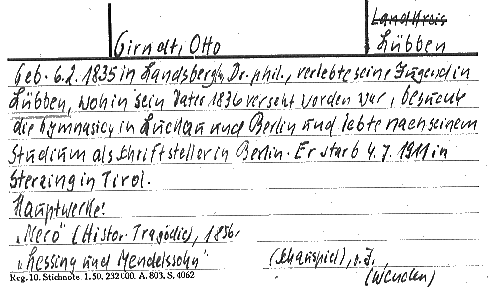 Landkreis
Girndt, Otto Lübben
Geb. 6.2. 1835 in Landsberg, Dr. phil., verlebte seine Jugend in
Lübben, wohin sein Vater 1836 versetzt worden war, besuchte
die Gymnasien in Luckau und Berlin und lebte nach seinem
Studium als Schriftsteller in Berlin. Er starb 4.7. 1911 in
Sterzing in Tirol.
Hauptwerke:
"Nero" (Histor. Tragödie), 1856.
"Lessing und Mendelssohn" (Schauspiel), o.J.
Reg. 10. Stichnote. 1. 50. 232000. A. 803. S. 4062 (Wenden)